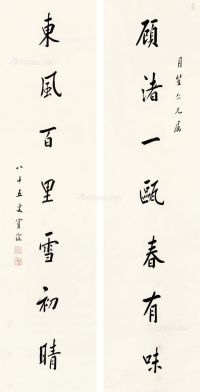 月笙仁兄属
顾渚一瓯春有味
東風百里雪初晴
八十五叟寳琛